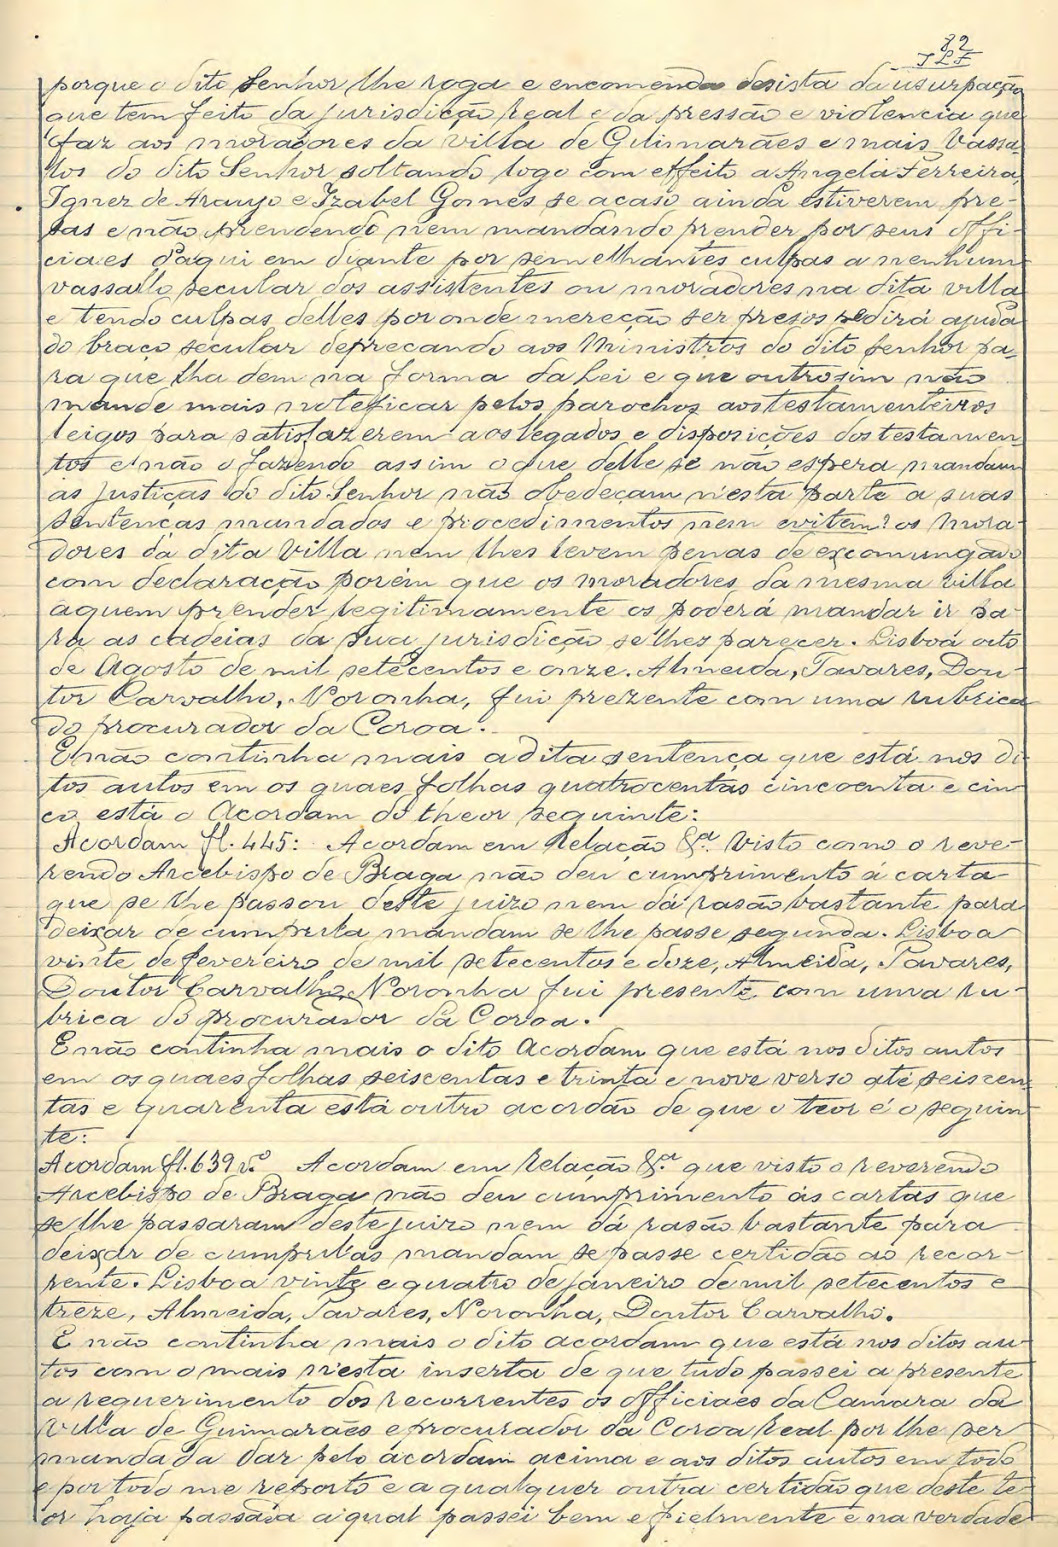 82
porque o dito Senhor lhe roga e encomenda desista da usurpação
que tem feito da jurisdicção Real e da pressão e violencia que
faz aos moradores da villa de Guimarães e mais Vassa-
los do dito Senhor soltando logo com effeito a Angela Ferreira,
Ignez de Araujo e Izabel Gomes se acaso ainda estiverem pre-
sas e não prendendo nem mandando prender por seus offi-
ciaes d'aqui em diante por semelhantes culpas a nenhum
vassallo secular dos assistentes ou moradores na dita villa
e tendo culpas delles por onde mereção ser presos pedirá ajuda
do braço secular deprecando aos Ministros do dito Senhor pa-
ra que lha dem na forma da Lei e que outrosim não
mande mais noteficar pelos parochos aos testamenteiros
leigos para satisfazerem aos legados e disposições dos testamen-
tos e não o fazendo assim o que delle se não espera mandam
as justiças do dito Senhor não obedeçam n'esta parte a suas
sentenças mandados e procedimentos nem evitem? os mora-
dores da dita Villa nem lhes levem penas de excomungado
com declaração porém que os moradores da mesma villa
aquem prender legitimamente os poderá mandar ir pa-
ra as cadeias da sua jurisdição se lhes parecer. Lisboa oito
de Agosto de mil setecentos e onze. Almeida, Tavares, Dou-
tor Carvalho, Noronha, fui prezente com uma rubrica
do procurador da Coroa.
E não continha mais a dita sentença que está nos di-
tos autos em os quaes folhas quatrocentas cincoenta e cin-
co está o Acordam do theor seguinte:
Acordam fl. 445: Acordam em Relação &.ª Visto como o reve-
rendo Arcebispo de Braga não deu cumprimento á carta
que se lhe passou deste juizo nem dá rasão bastante para
deixar de cumpril-a mandam se lhe passe segunda. Lisboa
vinte de fevereiro de mil setecentos e doze, Almeida, Tavares,
Doutor Carvalho, Noronha fui presente com uma ru-
brica do procurador da Coroa.
E não continha mais o dito Acordam que está nos ditos autos
em os quaes folhas seiscentas e trinta e nove verso até seiscen-
tas e quarenta está outro acordão de que o teor é o seguin-
te:
Acordam fl. 639 v.º Acordam em Relação &.ª que visto o reverendo
Arcebispo de Braga não deu cumprimento ás cartas que
se lhe passaram deste juizo nem dá rasão bastante para
deixar de cumpril-as mandam se passe certidão ao recor-
rente. Lisboa vinte e quatro de janeiro de mil setecentos e
treze, Almeida, Tavares, Noronha, Doutor Carvalho.
E não continha mais o dito acordam que está nos ditos au-
tos com o mais n'esta inserta de que tudo passei a presente
a requerimento dos recorrentes os officiaes da Camara da
Villa de Guimarães e procurador da Coroa Real por lhe ser
mandada dar pelo acordam acima e aos ditos autos em todo
e por todo me reporto e a qualquer outra certidão que deste te-
or haja passada a qual passei bem e fielmente e na verdade